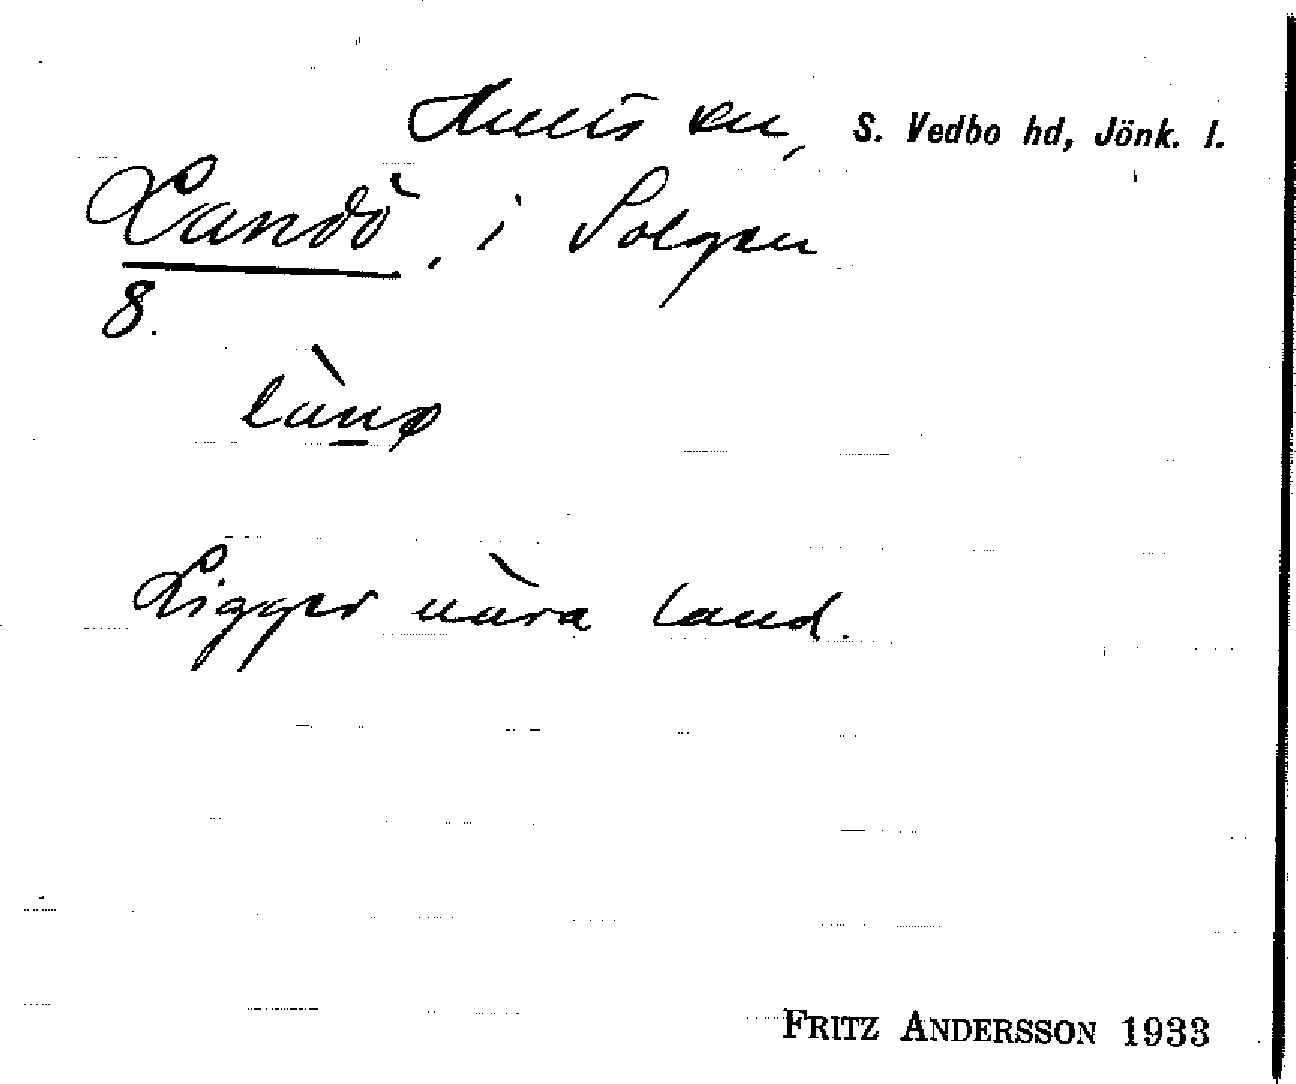 Hults sn, S. Vedbo hd, Jönk. l.
Landö, i Solgen
8.
Ligger nära land.
FRITZ ANDERSSON 1933